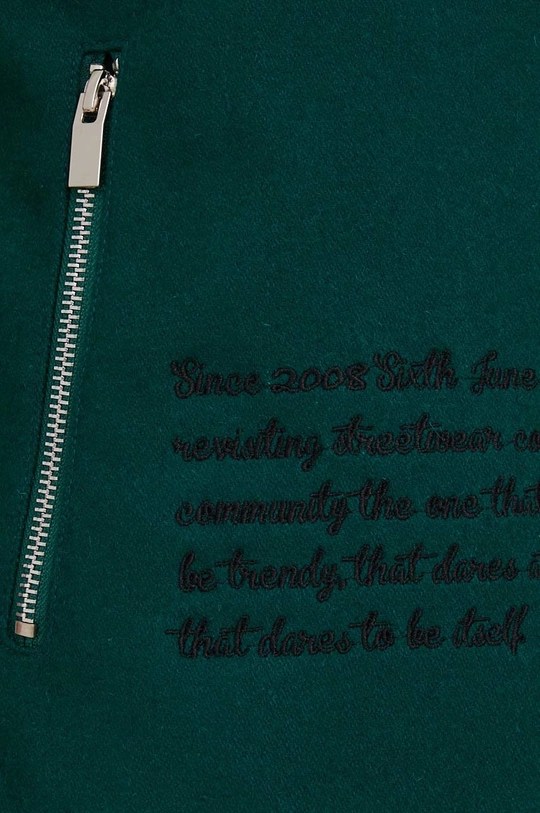 Since 2008 Sixth June
revisiting streetwear
community the one that
be trendy, that dares
that dares to be itself